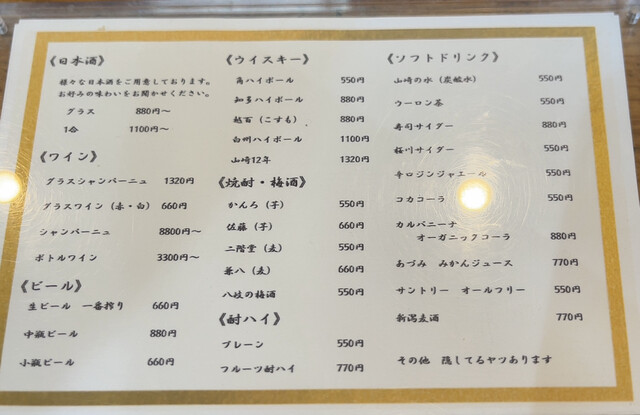 《日本酒》
様々な日本酒をご用意しております。
お好みの味わいをお聞かせください。
グラス 880円～
1合 1100円～
《ワイン》
グラスシャンパーニュ 1320円
グラスワイン（赤・白） 660円
シャンパーニュ 8800円～
ボトルワイン 3300円～
《ビール》
生ビール 一番搾り 660円
中瓶ビール 880円
小瓶ビール 660円
《ウイスキー》
角ハイボール 550円
知多ハイボール 880円
越百（こすも） 880円
白州ハイボール 1100円
山崎12年 1320円
《焼酎・梅酒》
かんろ（芋） 550円
佐藤（芋） 660円
二階堂（麦） 550円
兼八（麦） 660円
八岐の梅酒 550円
《酎ハイ》
プレーン 550円
フルーツ酎ハイ 770円
《ソフトドリンク》
山崎の水（炭酸水） 550円
ウーロン茶 550円
寿司サイダー 880円
桜川サイダー 550円
辛口ジンジャエール 550円
コカコーラ 550円
カルパニーナ
オーガニックコーラ 880円
あづみ みかんジュース 770円
サントリー オールフリー 550円
新潟麦酒 770円
その他 隠してるヤツあります